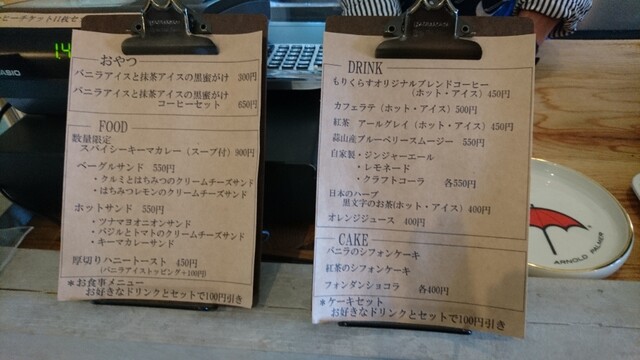 ヒーチケット11枚セ
1.4
CASIO
おやつ
バニラアイスと抹茶アイスの黒蜜がけ 300円
バニラアイスと抹茶アイスの黒蜜がけ
コーヒーセット 650円
FOOD
数量限定
スパイシーキーマカレー（スープ付）900円
ベーグルサンド 550円
・クルミとはちみつのクリームチーズサンド
・はちみつレモンのクリームチーズサンド
ホットサンド 550円
・ツナマヨオニオンサンド
・バジルとトマトのクリームチーズサンド
・キーマカレーサンド
厚切りハニートースト 450円
(バニラアイストッピング+100円)
*お食事メニュー
お好きなドリンクとセットで100円引き
DRINK
もりくらすオリジナルブレンドコーヒー
（ホット・アイス）450円
カフェラテ（ホット・アイス）500円
紅茶 アールグレイ（ホット・アイス）450円
蒜山産ブルーベリースムージー 550円
自家製・ジンジャーエール
・レモネード
・クラフトコーラ 各550円
日本のハーブ
黒文字のお茶(ホット・アイス）400円
オレンジジュース 400円
CAKE
バニラのシフォンケーキ
紅茶のシフォンケーキ
フォンダンショコラ 各400円
*ケーキセット
お好きなドリンクとセットで100円引き
ARNOLD PALMER